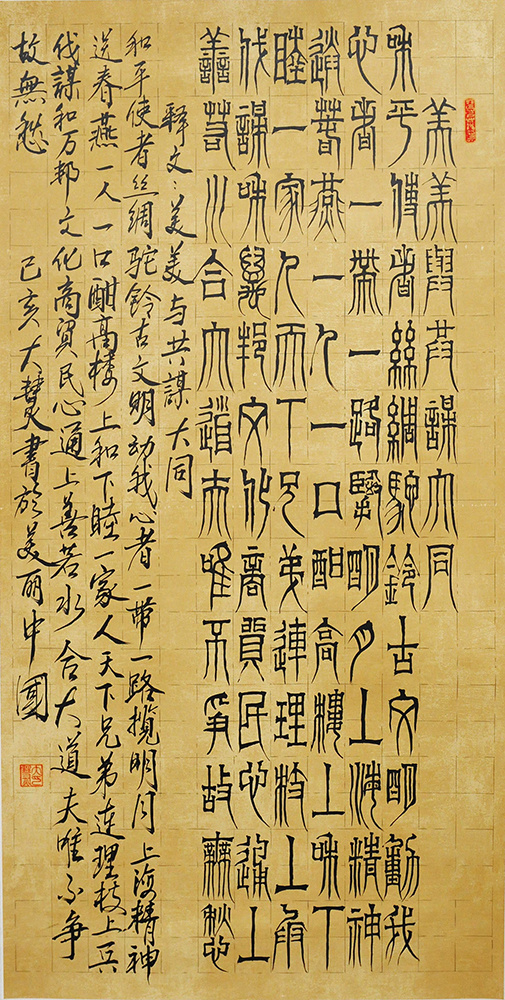 美美與共謀大同
和平使者絲綢駝鈴古文明動我
心者一帶一路攬明月上海精神
送春燕一人一口酣高樓上和下
睦一家人天下兄弟連理枝上兵
伐謀和萬邦文化商貿民心通上
善若水合大道夫唯不爭故無愁
釋文：美美与共謀大同
和平使者丝绸駝鈴古文明动我心者一带一路攬明月上海精神
送春燕一人一口酣高楼上和下睦一家人天下兄弟连理枝上兵
伐謀和万邦文化商贸民心通上善若水合大道夫唯不争
故無愁 己亥大書於美丽中國